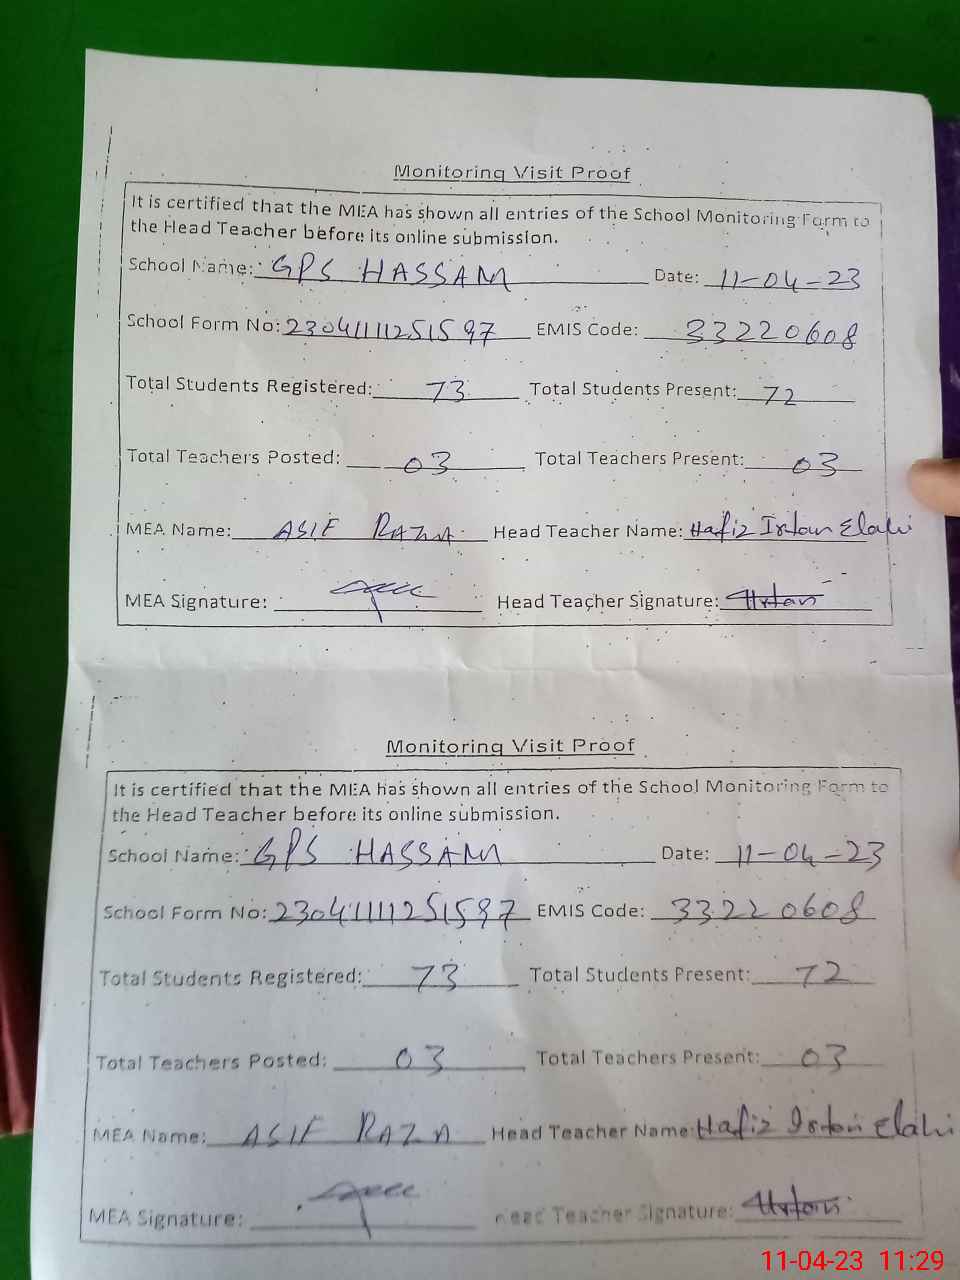 Monitoring Visit Proof
It is certified that the MEA has shown all entries of the School Monitoring Form to
the Head Teacher before its online submission.
School Name: GPS HASSAM Date: 11-04-23
School Form No: 23041111251597 EMIS Code: 33220608
Total Students Registered: 73 Total Students Present: 72
Total Teachers Posted: 03 Total Teachers Present: 03
MEA Name: ASIF RAZA Head Teacher Name: Hafiz Irfan Elahi
MEA Signature: Head Teacher Signature: Irfan
Monitoring Visit Proof
It is certified that the MEA has shown all entries of the School Monitoring Form to
the Head Teacher before its online submission.
School Name: GPS HASSAM Date: 11-04-23
School Form No: 23041111251597 EMIS Code: 33220608
Total Students Registered: 73 Total Students Present: 72
Total Teachers Posted: 03 Total Teachers Present: 03
MEA Name: ASIF RAZA Head Teacher Name: Hafiz Irfan Elahi
MEA Signature: Head Teacher Signature: Irfan
11-04-23 11:29